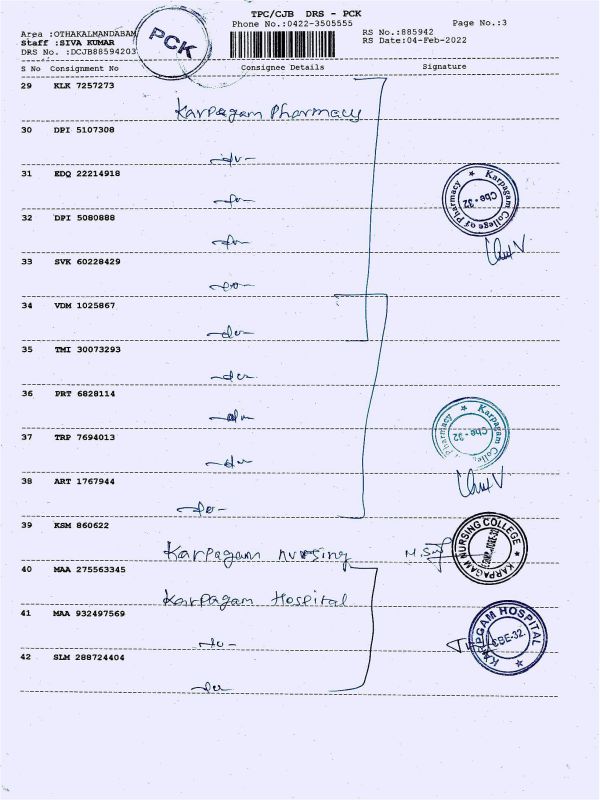 TPC/CJB DRS - PCK
Phone No.:0422-3505555
Page No.:3
Area :OTHAKALMANDABAM
Staff :SIVA KUMAR
DRS No. :DCJB88594203
PCK
RS No.:885942
RS Date:04-Feb-2022
S No Consignment No Consignee Details Signature
29 KLK 7257273
Karpagam Pharmacy
30 DPI 5107308
-do-
31 EDQ 22214918
-do-
32 DPI 5080888
-do-
Karpagam College of Pharmacy
Cbe - 32
33 SVK 60228429
-do-
34 VDM 1025867
-do-
35 TMI 30073293
-do-
36 PRT 6828114
-do-
Karpagam College Pharmacy
Cbe - 32
37 TRP 7694013
-do-
38 ART 1767944
-do-
39 KSM 860622
Karpagam Nursing
KARPAGAM NURSING COLLEGE
40 MAA 275563345
Karpagam Hospital
41 MAA 932497569
-do-
KARPAGAM HOSPITAL
CBE-32.
42 SLM 288724404
-do-